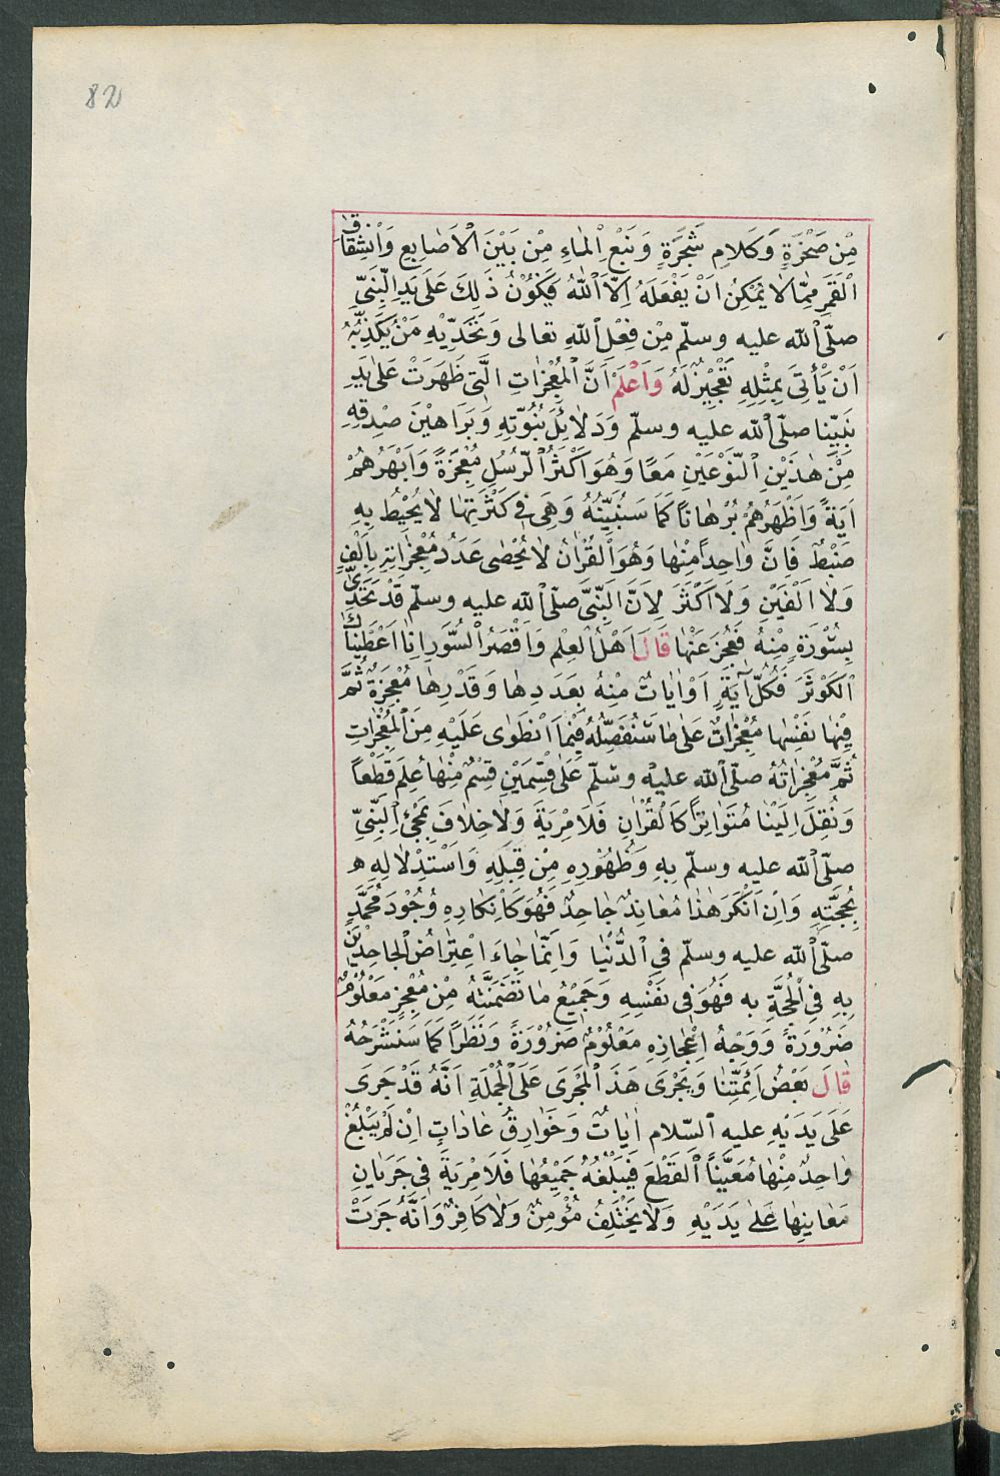 82
مِنْ صَخْرَةٍ وَكَلَامِ شَجَرَةٍ وَنَبْعِ الْمَاءِ مِنْ بَيْنَ الْاَصَابِعِ وَانْشِقَاقِ
الْقَمَرِ مِمَّا لَا يُمْكِنُ اَنْ يَفْعَلَهُ اِلَّا اللّٰهُ فَيَكُوْنُ ذَلِكَ عَلَى يَدِ النَّبِيِّ
صلّى اللّه عليه وسلّم مِنْ فِعْلِ اللّٰهِ تعالى وَتَحَدِّيْهِ مَنْ يُكَذِّبُهُ
اَنْ يَأْتِيَ بِمِثْلِهِ تَعْجِيْزٌ لَهُ وَاعْلَمْ اَنَّ الْمُعْجِزَاتِ الَّتِى ظَهَرَتْ عَلَى يَدِ
نَبِيِّنَا صلّى اللّه عليه وسلّم وَدَلَائِلَ نُبُوَّتِهِ وَبَرَاهِيْنَ صِدْقِهِ
مِنْ هٰذَيْنِ النَّوْعَيْنِ مَعًا وَهُوَ اَكْثَرُ الرُّسُلِ مُعْجِزَةً وَاَبْهَرُهُمْ
اٰيَةً وَاَظْهَرُهُمْ بُرْهَانًا كَمَا سَنُبَيِّنُهُ وَهِىَ فِى كَثْرَتِهَا لَا يُحِيْطُ بِهِ
ضَبْطٌ فَاِنَّ وَاحِدًا مِنْهَا وَهُوَ الْقُرْاٰنُ لَا يُحْصَى عَدَدُ مُعْجِزَاتِهِ بِاَلْفٍ
وَلَا اَلْفَيْنِ وَلَا اَكْثَرَ لِاَنَّ النَّبِىَّ صلّى اللّه عليه وسلّم قَدْ تَحَدَّىٰ
بِسُوْرَةٍ مِنْهُ فَعُجِزَ عَنْهَا قَالَ اَهْلُ الْعِلْمِ وَاَقْصَرُ السُّوَرِ اِنَّا اَعْطَيْنَاكَ
الْكَوْثَرَ فَكُلُّ اٰيَةٍ اَوْ اٰيَاتٌ مِنْهُ بِعَدَدِهَا وَقَدْرِهَا مُعْجِزَةٌ ثُمَّ
فِيْهَا نَفْسِهَا مُعْجِزَاتٌ عَلَى مَا سَنُفَصِّلُهُ فِيْمَا انْطَوٰى عَلَيْهِ مِنَ الْمُعْجِزَاتِ
ثُمَّ مُعْجِزَاتُهُ صلّى اللّه عليه وسلّم عَلَى قِسْمَيْنِ قِسْمٌ مِنْهَا عُلِمَ قَطْعًا
وَنُقِلَ اِلَيْنَا مُتَوَاتِرًا كَالْقُرْاٰنِ فَلَا مِرْيَةَ وَلَا خِلَافَ بِمَجِئِ النَّبِيِّ
صلّى اللّه عليه وسلّم بِهِ وَظُهُوْرِهِ مِنْ قِبَلِهِ وَاسْتِدْلَالِهِ
بِحُجَّتِهِ وَاِنْ اَنْكَرَ هٰذَا مُعَانِدٌ جَاحِدٌ فَهُوَ كَاِنْكَارِهِ وُجُوْدَ مُحَمَّدٍ
صلّى اللّه عليه وسلّم فِى الدُّنْيَا وَاِنَّمَا جَاءَ اعْتِرَاضُ الْجَاحِدِيْنَ
بِهِ فِى الْحُجَّةِ به فَهُوَ فِى نَفْسِهِ وَجَمِيْعُ مَا تَضَمَّنَهُ مِنْ مُعْجِزٍ مَعْلُوْمٌ
ضَرُوْرَةً وَوَجْهُ اِعْجَازِهِ مَعْلُوْمٌ ضَرُوْرَةً وَنَظَرًا كَمَا سَنَشْرَحُهُ
قَالَ بَعْضُ اَئِمَّتِنَا وَيَجْرِى هَذَا الْمَجْرَى عَلَى الْجُمْلَةِ اَنَّهُ قَدْ جَرَى
عَلَى يَدَيْهِ عليه السّلام اٰيَاتٌ وَخَوَارِقُ عَادَاتٍ اِنْ لَمْ يَبْلُغْ
وَاحِدٌ مِنْهَا مُعَيَّنًا الْقَطْعَ فَيَبْلُغُهُ جَمِيْعُهَا فَلَا مِرْيَةَ فِى جَرَيَانِ
مَعَانِيْهَا عَلَى يَدَيْهِ وَلَا يَخْتَلِفُ مُؤْمِنٌ وَلَا كَافِرٌ وَاَنَّهُ جَرَتْ